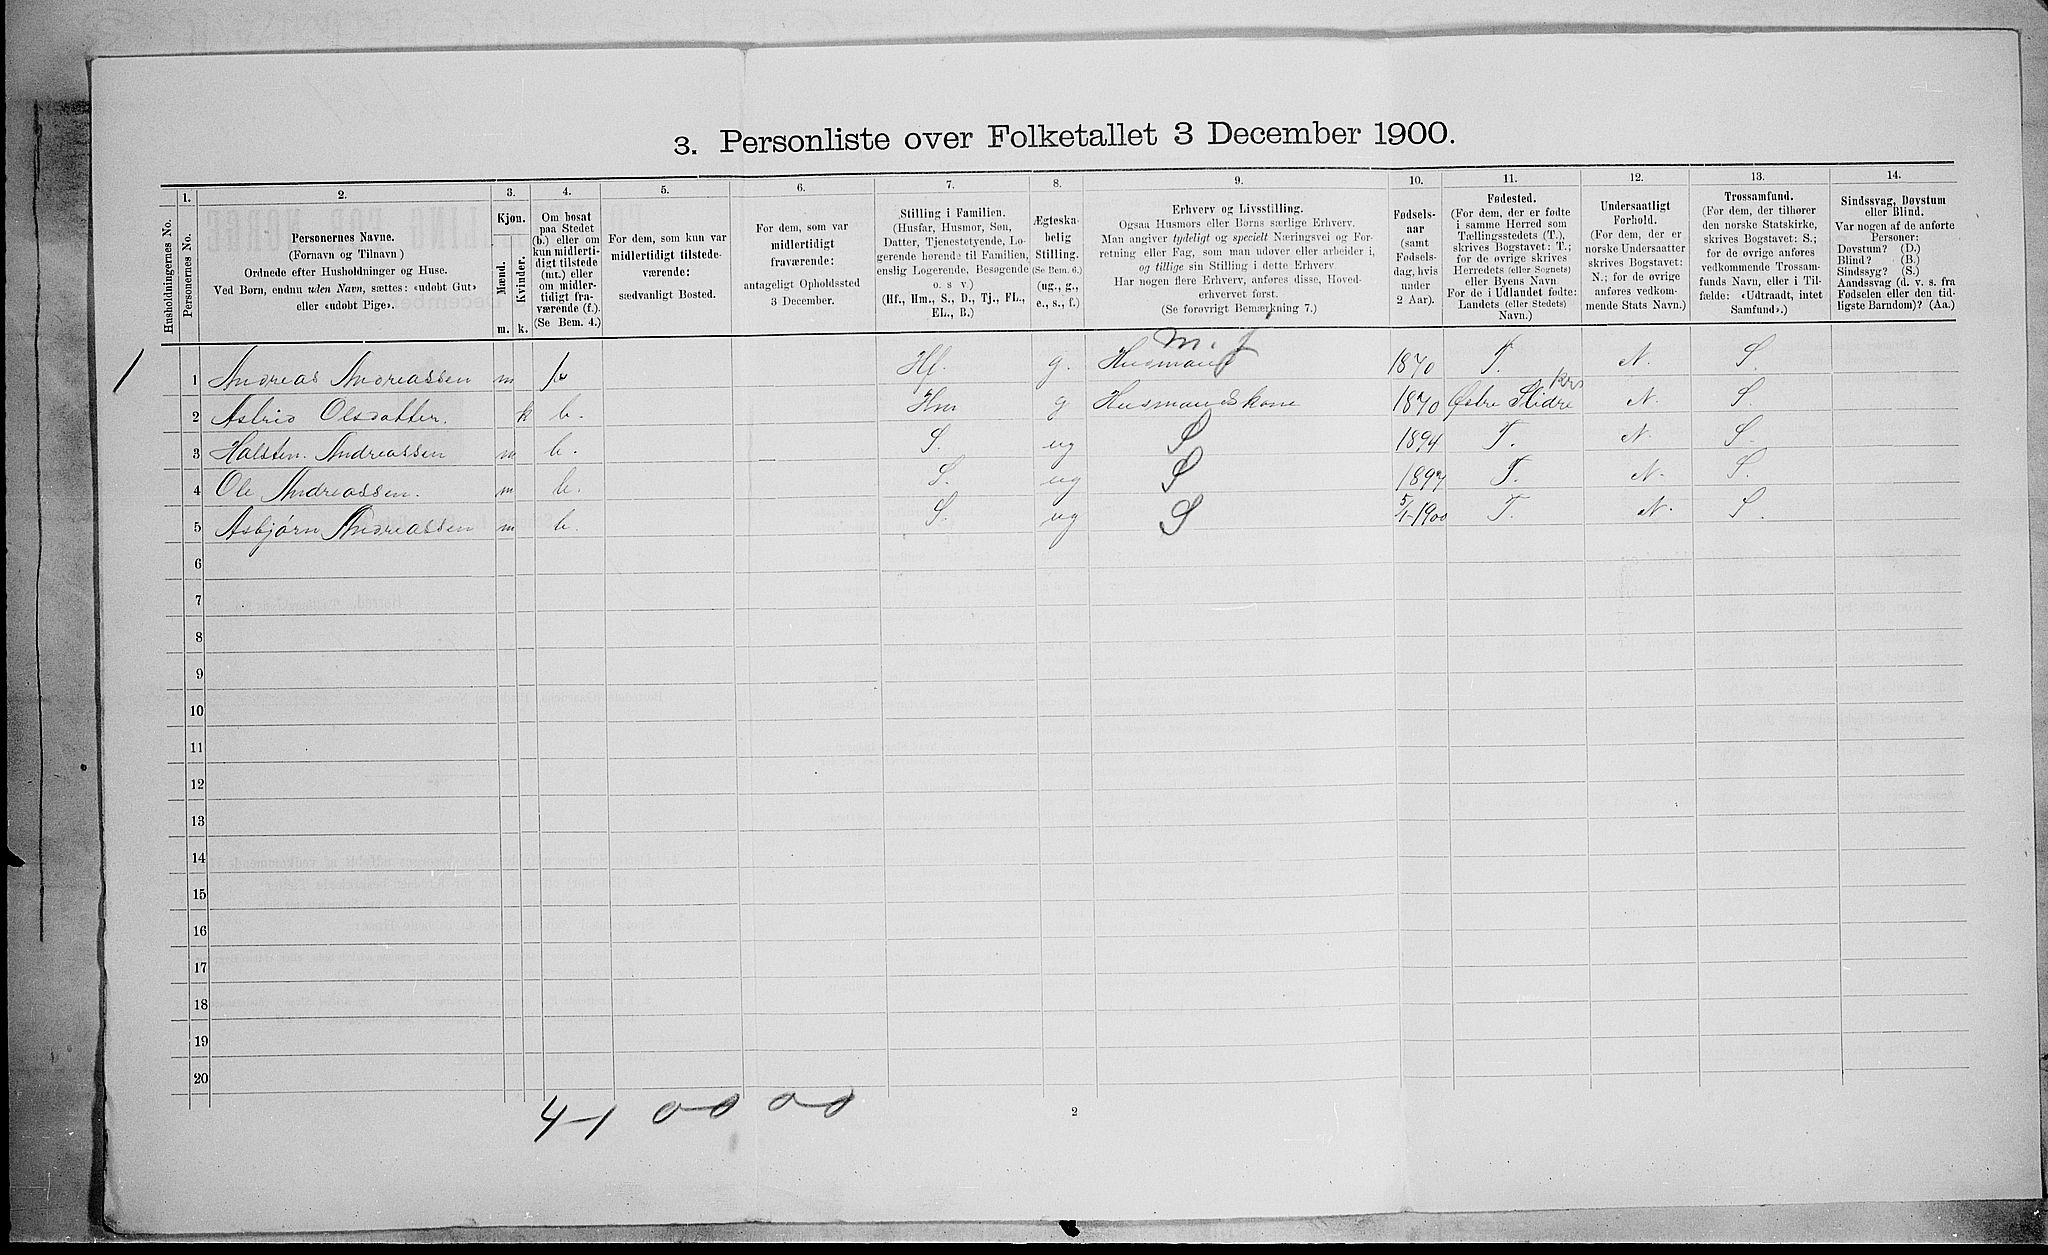 3. Personliste over Folketallet 3 December 1900.
1. 2. 3. 4. 5. 6. 7. 8. 9. 10. 11. 12. 13. 14.
Husholdningernes No.
Personernes No.
Personernes Navne.
(Fornavn og Tilnavn)
Ordnede efter Husholdninger og Huse.
Ved Børn, endnu uden Navn, sættes: «udøbt Gut»
eller «udøbt Pige».
Kjøn.
Mænd. Kvinder.
m. k.
Om bosat
paa Stedet
(b.) eller om
kun midlerti-
digt tilstede
(mt.) eller
om midler-
tidigt fra-
værende (f.).
(Se Bem. 4.)
For dem, som kun var
midlertidigt tilstede-
værende:
sædvanligt Bosted.
For dem, som var
midlertidigt
fraværende:
antageligt Opholdssted
3 December.
Stilling i Familien.
(Husfar, Husmor, Søn,
Datter, Tjenestetyende, Lo-
gerende hørende til Familien,
enslig Logerende, Besøgende
o. s v.)
(Hf., Hm., S., D., Tj., FL.,
EL., B.)
Ægteska-
belig
Stilling.
(Se Bem. 6.)
(ug., g.,
e., s., f.)
Erhverv og Livsstilling.
Ogsaa Husmors eller Børns særlige Erhverv.
Man angiver tydeligt og specielt Næringsvei og For-
retning eller Fag, som man udøver eller arbeider i,
og tillige sin Stilling i dette Erhverv.
Har nogen flere Erhverv, anføres disse, Hoved-
erhvervet først.
(Se forøvrigt Bemærkning 7.)
Fødsels-
aar
(samt
Fødsels-
dag, hvis
under
2 Aar).
Fødested.
(For dem, der er fødte
i samme Herred som
Tællingsstedets (T.),
skrives Bogstavet: T.;
for de øvrige skrives
Herredets (eller Sognets)
eller Byens Navn
For de i Udlandet fødte:
Landets (eller Stedets)
Navn.)
Undersaatligt
Forhold.
(For dem, der er
norske Undersaatter
skrives Bogstavet:
N.; for de øvrige
anføres vedkom-
mende Stats Navn.)
Trossamfund.
(For dem, der tilhører
den norske Statskirke,
skrives Bogstavet: S.;
for de øvrige anføres
vedkommende Trossam-
funds Navn, eller i Til-
fælde: «Udtraadt, intet
Samfund».)
Sindssvag, Døvstum
eller Blind.
Var nogen af de anførte
Personer:
Døvstum? (D.)
Blind? (B.)
Sindssyg? (S.)
Aandssvag (d. v. s. fra
Fødselen eller den tid-
ligste Barndom)? (Aa.)
m. j
1 1 Andreas Andreassen m b Hf. g. Husmand 1870 T. N. S.
2 Astrid Olsdatter. k b. Hm g Husmandskone 1870 Østre Slidre N. S.
3 Halsten Andreassen m b. S. ug S 1894 T. N. S.
4 Ole Andreassen. m b. S. ug S 1897 T. N. S.
5 Asbjørn Andreassen m b. S. ug S 5/1-1900 T. N. S.
6
7
8
9
10
11
12
13
14
15
16
17
18
19
20
4-1 0-0 0-0
2